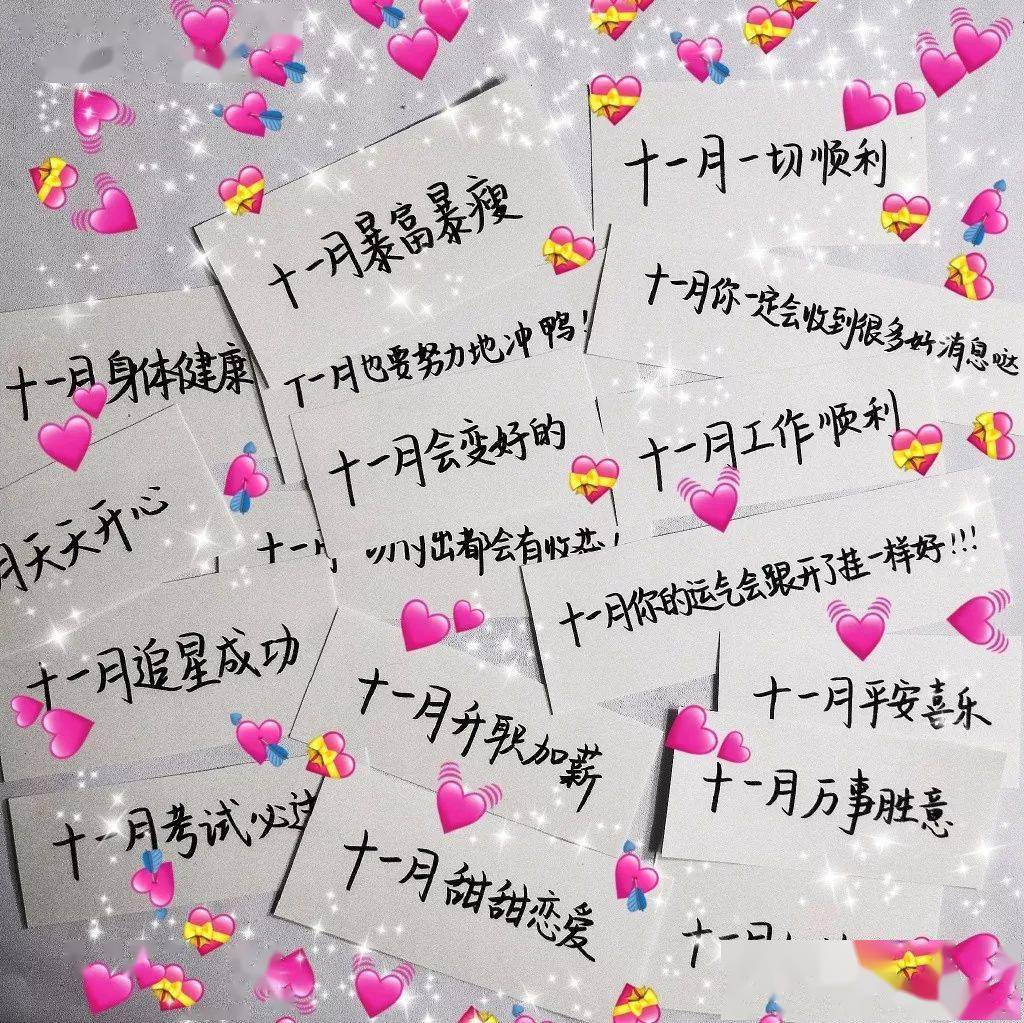 十一月一切顺利
十一月暴富暴瘦
十一月你一定会收到很多好消息哒
十一月也要努力地冲鸭!
十一月身体健康
十一月会变好的
十一月工作顺利
月天天开心
十一月
出都会有收获!
十一月你的运气会跟开了挂一样好!!!
十一月追星成功
十一月升职加薪
十一月平安喜乐
十一月万事胜意
十一月考试必过
十一月甜甜恋爱
十一月